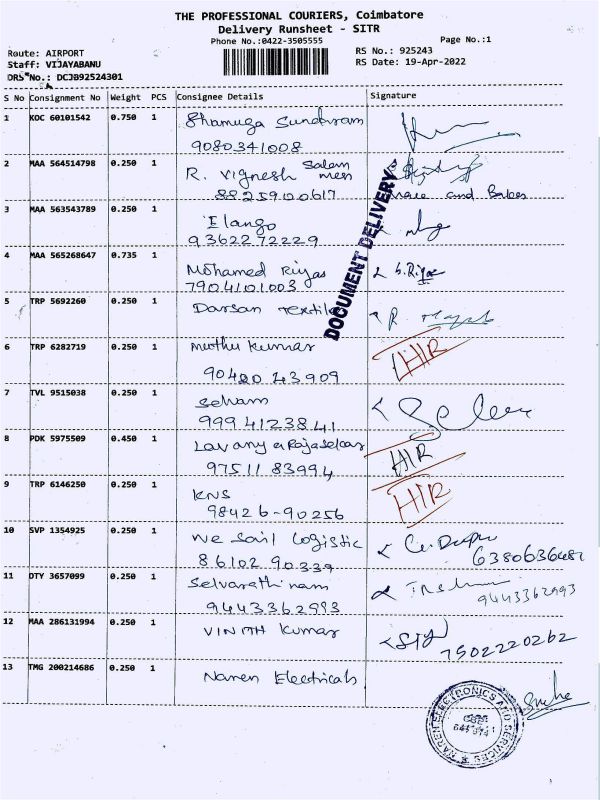 THE PROFESSIONAL COURIERS, Coimbatore
Delivery Runsheet - SITR
Phone No.:0422-3505555
Page No.:1
Route: AIRPORT
Staff: VIJAYABANU
DRS No.: DCJB92524301
RS No.: 925243
RS Date: 19-Apr-2022
S No Consignment No Weight PCS Consignee Details Signature
1 KOC 60101542 0.750 1 Shamuga Sundaram
9080341008
2 MAA 564514798 0.250 1 R. Vignesh Salem men
88259100617
and Babes
3 MAA 563543789 0.250 1 Elango
9362272229
4 MAA 565268647 0.735 1 Mohamed Riyas
7904101003
DOCUMENT DELIVERY
5 TRP 5692260 0.250 1 Darsan Textile
6 TRP 6282719 0.250 1 Muthu Kumar HIR
90420 43909
7 TVL 9515038 0.250 1 Selvam
99941238 41
8 PDK 5975509 0.450 1 Lavanya Rajasekar HIR
97511 83994
9 TRP 6146250 0.250 1 KNS HIR
98426-90256
10 SVP 1354925 0.250 1 We Sail Logistic
86102 90339
11 DTY 3657099 0.250 1 Selvarathinam
9443362993 9443362993
12 MAA 286131994 0.250 1 VINITH Kumar
7502220262
13 TMG 200214686 0.250 1 Naren Electricals
NAREN ELECTRONICS AND SERVICES